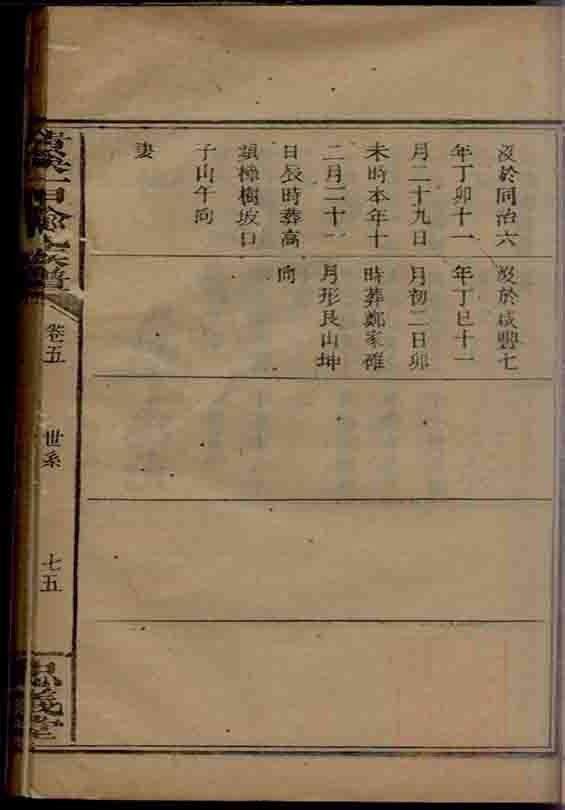 沒於同治六
年丁卯十一
月二十九日
未時本年十
二月二十一
日辰時葬高
樟樹坡口
子山午向
妻
沒於咸豐七
年丁巳十一
月初二日卯
時葬鄭家碓
月形艮山坤
向
族譜
卷五
世系
七五
忠義堂